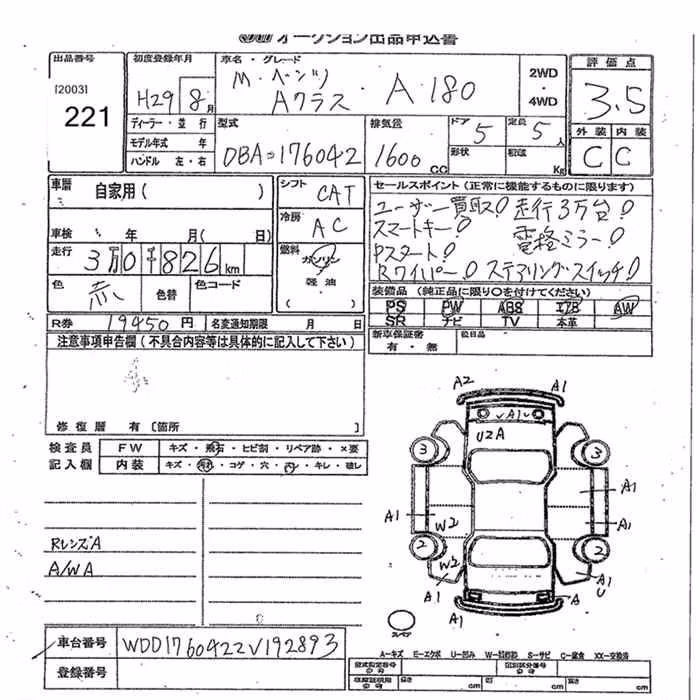 オークション出品申込書
出品番号 初度登録年月 車名・グレード 評価点
[2003] 221
H29 8月
M・ベンツ Aクラス ・ A 180
2WD ・ 4WD
3.5
ディーラー・並行 型式 排気量 ドア 5 定員 5人 外装 内装
モデル年式 年
ハンドル 左・右 DBA-176042 1600CC 形状 積載 Kg C C
車歴 自家用( ) シフト CAT
セールスポイント(正常に機能するものに限ります)
ユーザー買取! 走行3万台!
スマートキー! 電格ミラー!
Pスタート!
Rワイパー! ステアリングスイッチ!
車検 年 月( 日) 冷房 AC
走行 3万0千826km 燃料 ガソリン ・ 軽油
色 赤 色替 色コード
装備品(純正品に限り○を付けてください)
PS PW ABS エアB AW
SR ナビ TV 本革
R券 19450円 名変通知期限 月 日
新車保証書 有・無 後日品
注意事項申告欄(不具合内容等は具体的に記入して下さい)
修復歴 有 [箇所 ]
検査員記入欄 FW キズ・飛石・ヒビ割・リペア跡・×要
内装 キズ・汚れ・コゲ・穴・ハレ・キレ・破レ
RレンズA
A/WA
A2 A1
A1
U2A
3 3
A1
A1 W2 A1
2 2
W2
A1 A1 U
A1 A
スペア
A-キズ E-エクボ U-凹み W-補修跡 S-サビ C-腐食 XX-交換済
車台番号 WDD1760422V192893
登録番号
長さ cm 幅 cm 高さ cm